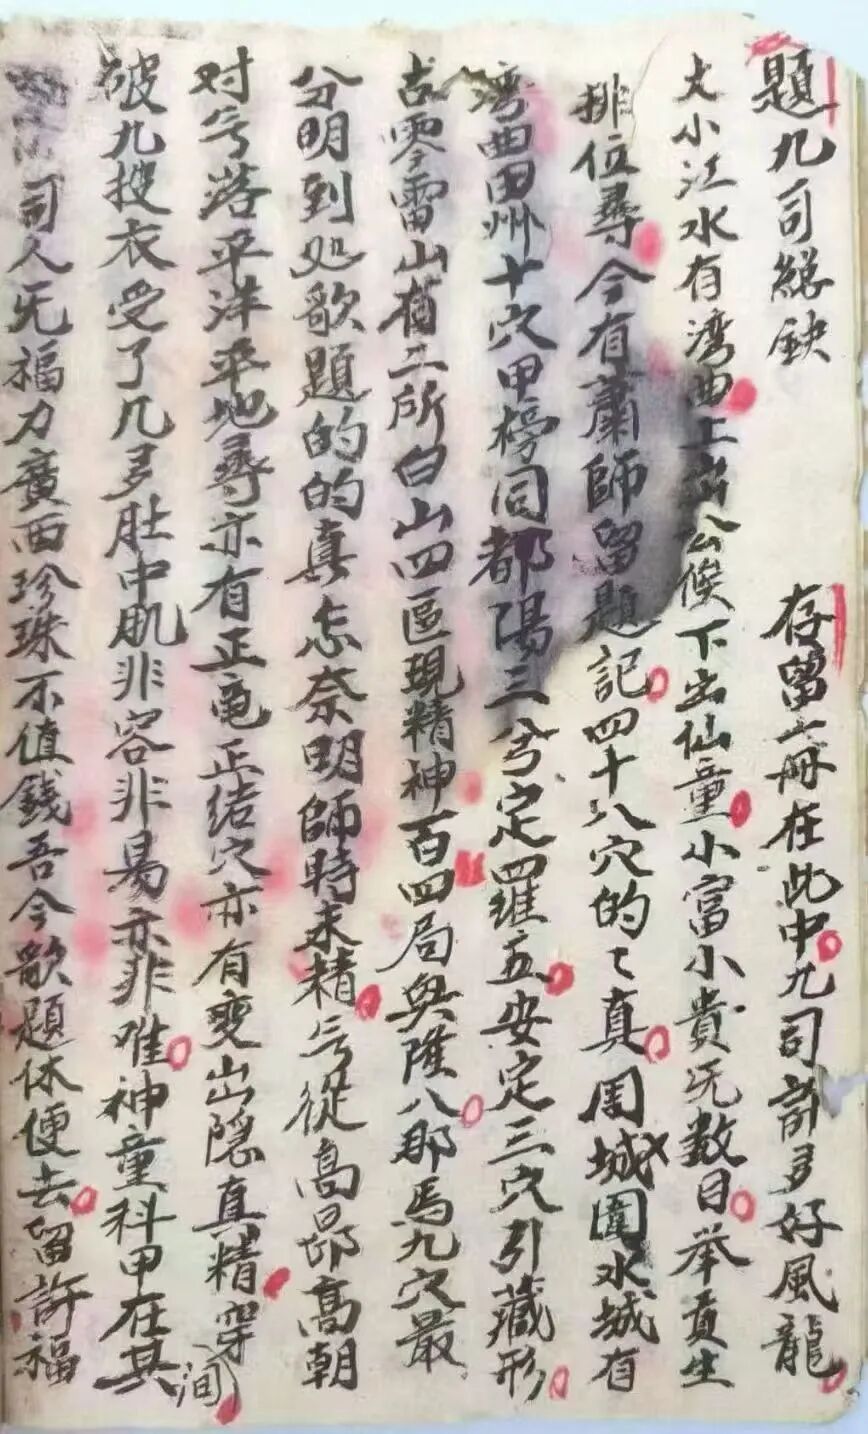 題九司總鈌 存留一冊在此中九司許多好風龍
大小江水有湾曲上出公侯下出仙童小富小貴旡数目举貢生
排位尋今有蕭師留題記四十八穴的〻真周城圍水城有
湾曲田州十穴甲榜同都陽三兮定羅五安定三穴引藏形
古零雷山有二所白山四區現精神百四局興隆八那馬九穴最
分明到処歌題的的真怎奈明師時未精兮從高昂高朝
对兮落平洋平地尋亦有正龟正结穴亦有变出隐真精穿
破九搜衣受了几多肚中肌非容非易亦非难神童科甲在其间
司人旡福力廣西珍珠不值錢吾今歌題休便去留許福